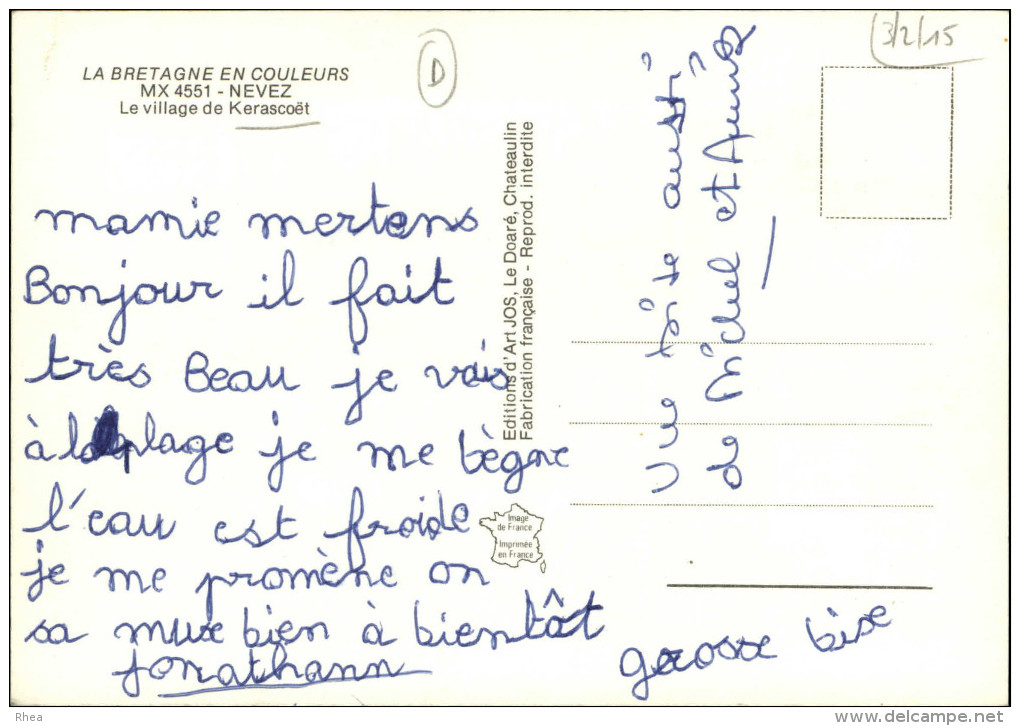 LA BRETAGNE EN COULEURS
MX 4551 - NEVEZ
Le village de Kerascoët
D
3/2/15
mamie mertens
Bonjour il fait
très Beau je vais
à la plage je me bègne
l'eau est froide
je me promène on
sa muse bien à bientôt
Jonathann
Editions d'Art JOS, Le Doaré, Chateaulin
Fabrication française - Reprod. interdite
Image
de France
Imprimée
en France
une bise aussi
de Michel et Annick
grosse bise
Rhea
www.delcampe.net